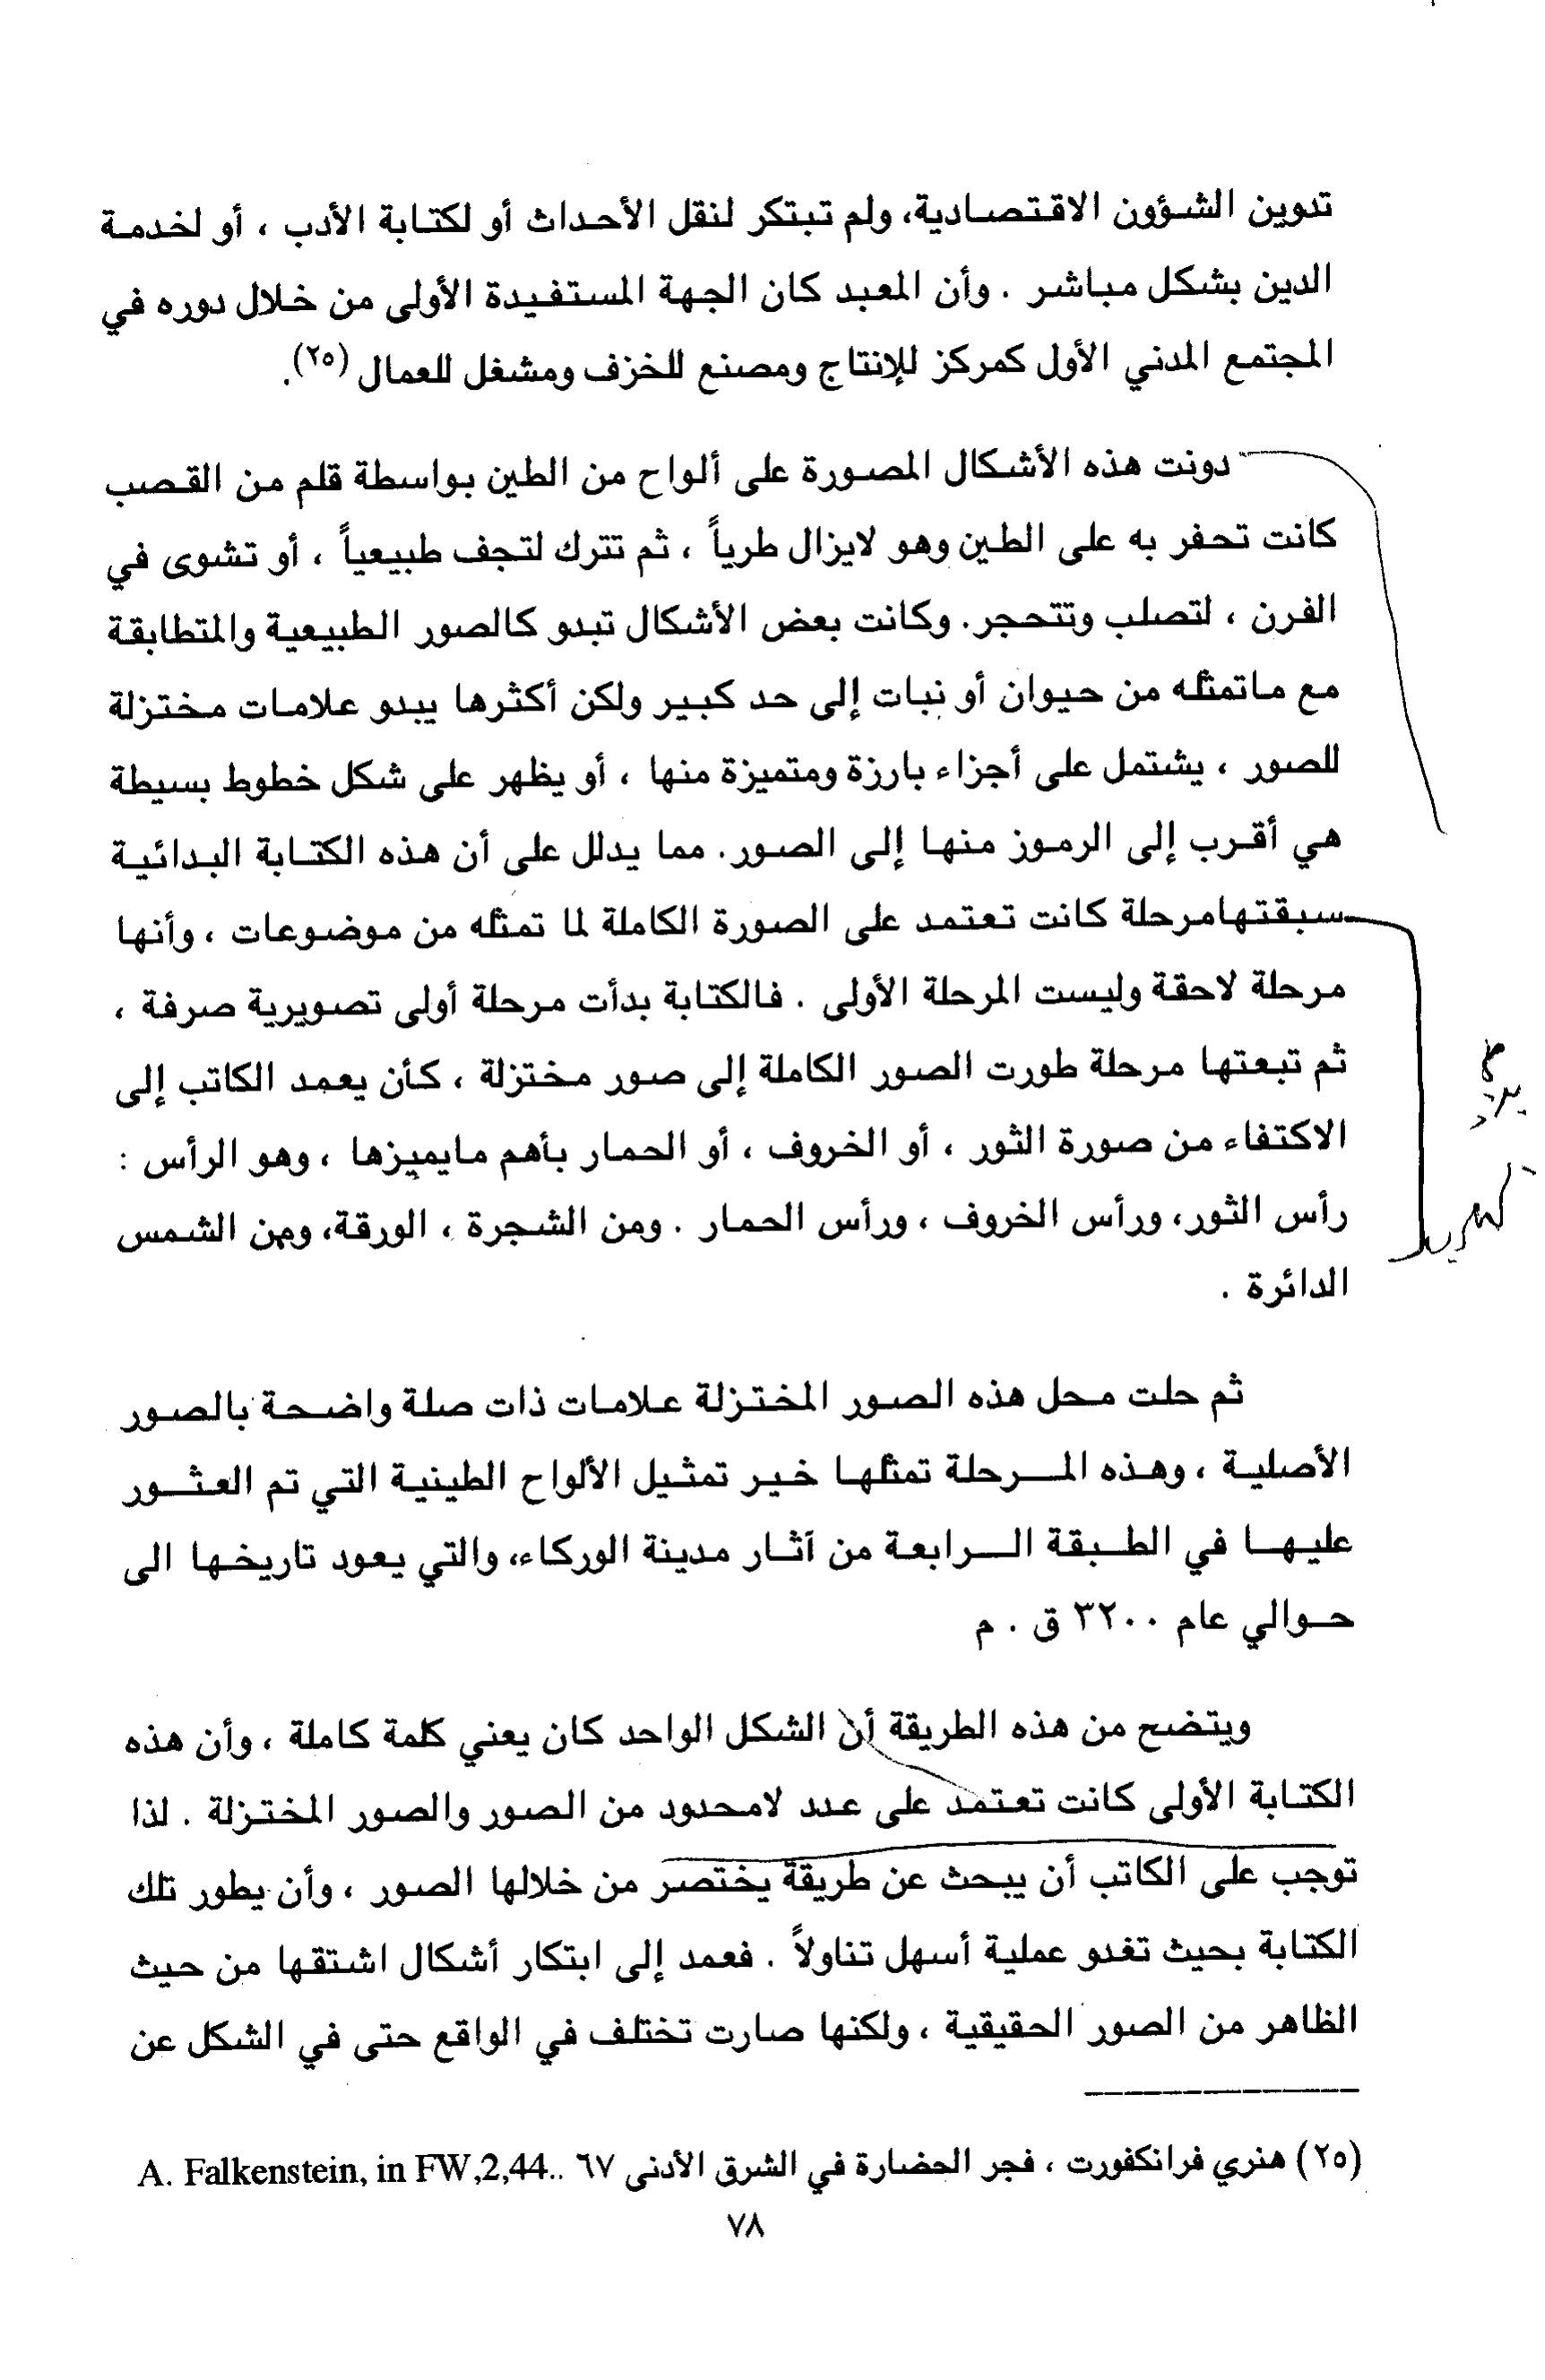 تدوين الشؤون الاقتصادية، ولم تبتكر لنقل الأحداث أو لكتابة الأدب ، أو لخدمة
الدين بشكل مباشر . وأن المعبد كان الجهة المستفيدة الأولى من خلال دوره في
المجتمع المدني الأول كمركز للإنتاج ومصنع للخزف ومشغل للعمال (٢٥).
دونت هذه الأشكال المصورة على ألواح من الطين بواسطة قلم من القصب
كانت تحفر به على الطين وهو لايزال طرياً ، ثم تترك لتجف طبيعياً ، أو تشوى في
الفرن ، لتصلب وتتحجر. وكانت بعض الأشكال تبدو كالصور الطبيعية والمتطابقة
مع ماتمثله من حيوان أو نبات إلى حد كبير ولكن أكثرها يبدو علامات مختزلة
للصور ، يشتمل على أجزاء بارزة ومتميزة منها ، أو يظهر على شكل خطوط بسيطة
هي أقرب إلى الرموز منها إلى الصور. مما يدلل على أن هذه الكتابة البدائية
سبقتهامرحلة كانت تعتمد على الصورة الكاملة لما تمثله من موضوعات ، وأنها
مرحلة لاحقة وليست المرحلة الأولى . فالكتابة بدأت مرحلة أولى تصويرية صرفة ،
ثم تبعتها مرحلة طورت الصور الكاملة إلى صور مختزلة ، كأن يعمد الكاتب إلى
الاكتفاء من صورة الثور ، أو الخروف ، أو الحمار بأهم مايميزها ، وهو الرأس :
رأس الثور، ورأس الخروف ، ورأس الحمار . ومن الشجرة ، الورقة، ومن الشمس
الدائرة .
ثم حلت محل هذه الصور المختزلة علامات ذات صلة واضحة بالصور
الأصلية ، وهذه المرحلة تمثلها خير تمثيل الألواح الطينية التي تم العثور
عليها في الطبقة الرابعة من آثار مدينة الوركاء، والتي يعود تاريخها الى
حوالي عام ٣٢٠٠ ق . م
ويتضح من هذه الطريقة أن الشكل الواحد كان يعني كلمة كاملة ، وأن هذه
الكتابة الأولى كانت تعتمد على عدد لامحدود من الصور والصور المختزلة . لذا
توجب على الكاتب أن يبحث عن طريقة يختصر من خلالها الصور ، وأن يطور تلك
الكتابة بحيث تغدو عملية أسهل تناولاً . فعمد إلى ابتكار أشكال اشتقها من حيث
الظاهر من الصور الحقيقية ، ولكنها صارت تختلف في الواقع حتى في الشكل عن
(٢٥) هنري فرانكفورت ، فجر الحضارة في الشرق الأدنى ٦٧ ..A. Falkenstein, in FW,2,44
٧٨